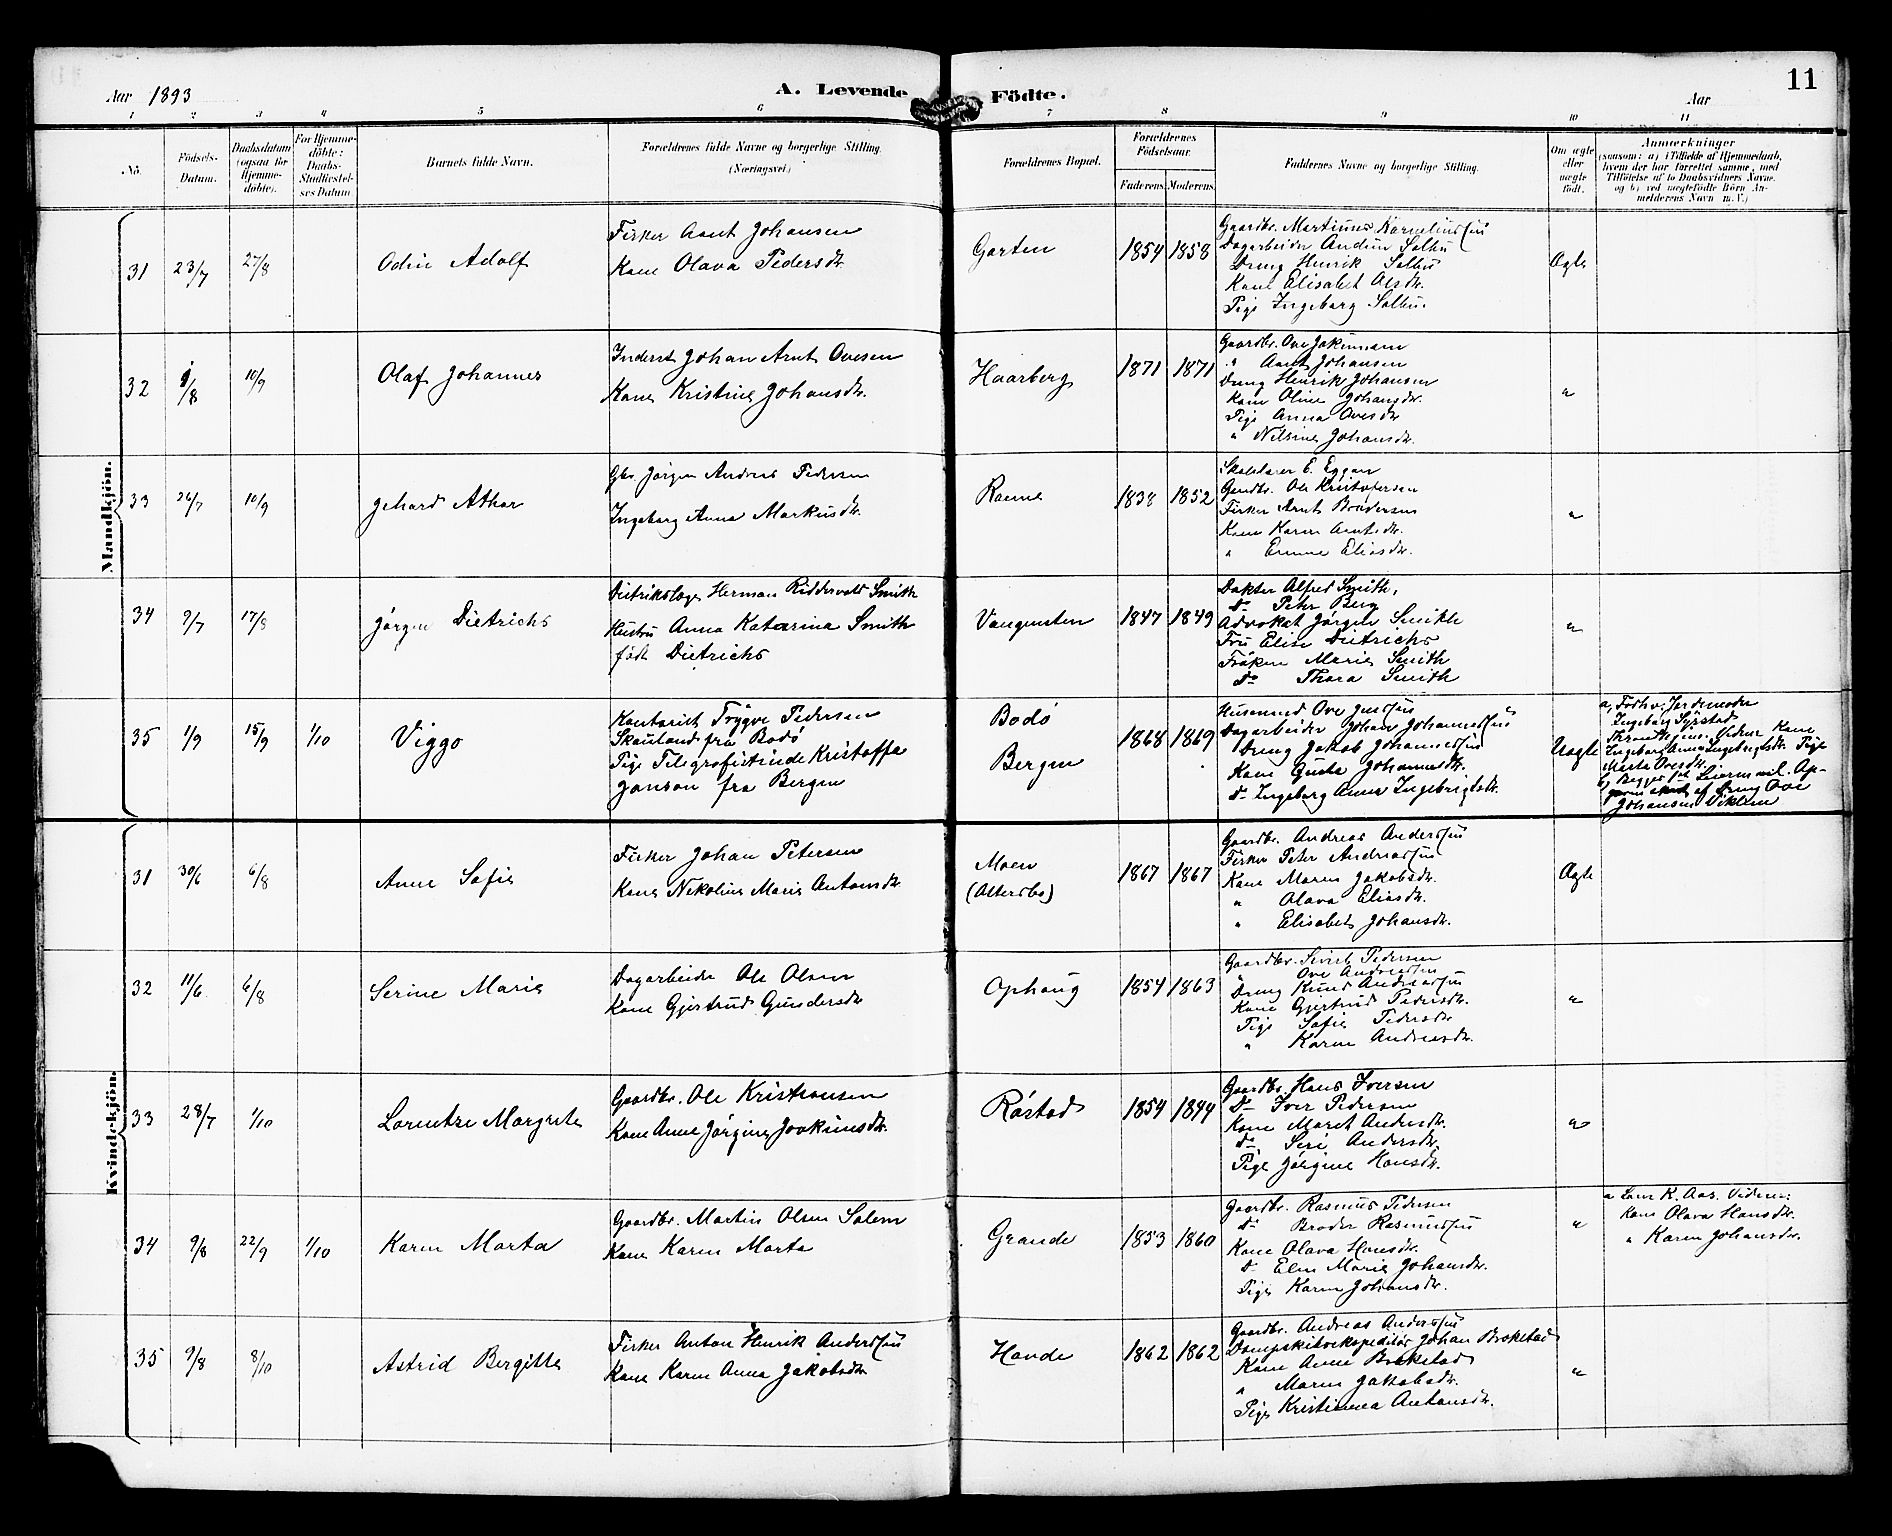 Aar 1893
A. Levende Födte.
Aar
11
1 2 3 4 5 6 7 8 9 10 11
No.
Födsels-Datum.
Daabsdatum (ogsaa for Hjemme-döbte).
For Hjemme-döbte: Daabs-Stadfæstel-ses Datum
Barnets fulde Navn.
Forældrenes fulde Navne og borgerlige Stilling
(Næringsvei)
Forældrenes Bopæl.
Forældrenes Födselsaar.
Faderens Moderens
Faddernes Navne og borgerlige Stilling.
Om ægte eller uægte födt.
Anmærkninger
(saasom: a) i Tilfælde af Hjemmedaab,
hvem der har forrettet samme, med
Tilföielse af to Daabsvidners Navne.
og b) ved uægtefödte Börn An-
melderens Navn m.V.)
Mandkjön.
31 23/7 27/8
Odin Adolf
Fisker Arnt Johansen
Kone Olava Pedersdr.
Garten
1854 1858
Gaardbr. Martinus Kornelius
Dagarbeider Andrew Solbu
Dreng Henrik Solbu
Kone Elisabet Olsdr.
Pige Ingeborg Solbu.
Ægte
32 9/8 10/9
Olaf Johannes
Inderst Johan Arnt Ovesen
Kone Kristine Johansdr.
Haarberg
1871 1871
Gaardbr. Ove
" Arnt Johansen
Dreng Henrik Johansen
Kone Oline Johansdr.
Pige Anna Ovesdr
" Nilsine Johansdr.
"
33 26/7 10/9
Gehard Athor
Gbr. Jørgen Andreas Pedersen
Ingeborg Anna Markusdr.
Rømme
1838 1852
Skolelærer E. Eggan
Gaardbr. Ole Kristofersen
Fisker Arnt Brodersen
Kone Karen Arntsdr.
" Emma Eliasdr.
"
34 9/7 17/8
Jørgen Dietrichs
Distriktslæge Herman Riddervold Smith
Hustru Anna Katarina Smith
født Dietrichs
Vangensten
1847 1849
Doktor Alfred Smith,
Do Peter Berg
Advokat Jørgen Smith
Fru Elise Dietrichs
Frøken Marie Smith
Do Thora Smith
"
35 1/9 15/9 1/10
Viggo
Kontorist Trygve Pedersen
Skauland fra Bodø
Pige Telegrafistinde Kristoffa
Janson fra Bergen
Bodø
Bergen
1868 1869
Husmand Ove
Dagarbeider Johan Johannes
Dreng Jakob Johannes
Kone Gusta Johannesdr.
do Ingeborg Anna Ingebrigtsdr.
Uægte
a, Fødh.v. Jordemoder
Ingeborg Syrstad
Throndhjem. Vidner Kone
Ingeborg Anna Ingebrigtsdr. Pige
Marta Ovesdr.
b, Begges 1ste Leiermaal. Op-
af Dreng Ove
Johansen Viklem
Kvindekjön.
31 30/6 6/8
Anne Sofie
Fisker Johan Petersen
Kone Nekoline Marie Antonsdr.
Moen
1867 1867
Gaardbr. Andreas Anders
Fisker Peter Andreas
Kone Maren Jakobsdr.
" Olava Eliasdr.
" Elisabet Johansdr.
Ægte
32 11/6 6/8
Serine Marie
Dagarbeider Ole Olsen
Kone Gjertrud Gundersdr
Ophaug
1854 1863
Gaardbr. Sivert Pedersen
" Ove Andreas
Dreng Knud Andreas
Kone Gjertrud Pedersdr.
Pige Sofie Pedersdr
" Karen Andreasdr.
"
33 28/7 1/10
Lorentze Margrete
Gaardbr. Ole Kristiansen
Kone Anne Jørgine Joakimsdr.
Røstad
1854 1844
Gaardbr. Hans Iversen
Do Iver Pedersen
Kone Maret Andersdr.
do Seri Andersdr.
Pige Jørgine Hansdr.
"
34 9/8 22/9 1/10
Karen Marta
Gaardbr. Martin Olsen Solem
Kone Karen Marta
Grande
1853 1860
Gaardbr. Rasmus Pedersen
do Broder Rasmus
Kone Olava Hansdr.
do Elen Marie Johansdr.
Pige Karen Johansdr.
"
a Lars K. Aas. Vidner:
Kone Olava Hansdr.
" Karen Johansdr.
35 9/8 8/10
Astrid Bergitte
Fisker Anton Henrik Anders
Kone Karen Anna Jakobsdr
Hovde
1862 1862
Gaardbr. Andreas Anders
Dampskibsekspeditør Johan Brekstad
Kone Anne Brekstad
" Maren Jakobsdr.
Pige Kristianna Antonsdr.
"